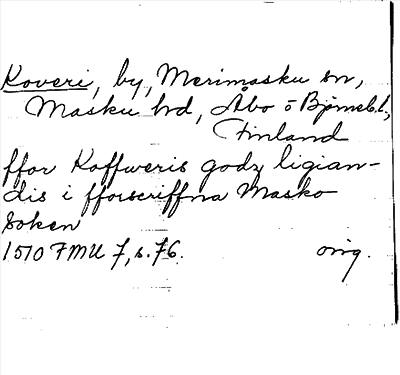 Koveri, by, Merimasku sn,
Masku hd, Åbo o Björneb. l.,
Finland
ffor Koffweris godz ligian-
dis i fforscriffna Masko
soken
1510 FMU 7, s. 76. orig.